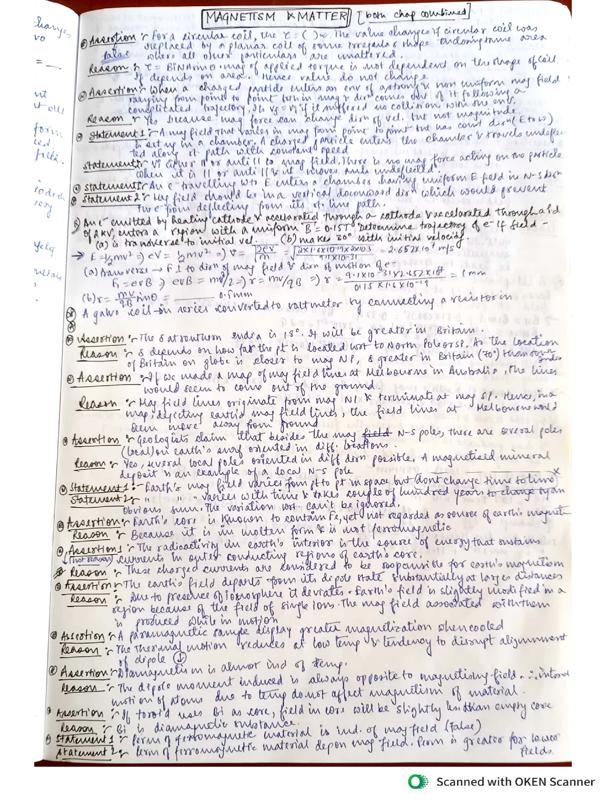 MAGNETISM & MATTER [both chap combined]
Assertion :- For a circular coil, the τ = ( ). The value changes if circular coil was
false replaced by a planar coil of some irregular shape enclosing same area
where all other particulars are unaltered.
Reason :- τ = BINA sinθ ∴ mag of applied torque is not dependent on the shape of coil.
It depends on area. Hence value do not change.
Assertion :- When a charged particle enters an env of a strong & non uniform mag field
varying from point to point both in mag & dirn comes out of it following a
complicated trajectory. Its vf = vi if it suffered no collision with the env.
Reason :- Yes because mag force can change dirn of vel. but not magnitude.
Statement 1 :- A mag field that varies in mag from point to point but has const dirn (E to W)
is set up in a chamber. A charged particle enters the chamber & travels undeflec
ted along st path with constant speed
Statement 2 :- Vi either || or anti || to mag field. There is no mag force acting on the particle
when it is || or anti || & it moves and undeflected
Statement 1 :- An e⁻ travelling W to E enters a chamber having uniform E field in N-S dirn
Statement 2 :- Mag field should be in a vertical downward dirn which would prevent
the e⁻ from deflecting from its st. line path.
An e⁻ emitted by heating cathode & accelerated through a cathode & accelerated through a Pd
of 2KV, enters a region with a uniform B = 0.15T. Determine trajectory of e⁻ if field -
(a) is transverse to initial vel. (b) makes 30° with initial velocity.
→ E = ½mv² ⇒ eV = ½mv² ⇒ v = √2eV/m = √2×1.6×10⁻¹⁹×2×10³/9.1×10⁻³¹ = 2.652×10⁷ m/s
(a) transverse → F ⊥ to dirn of mag field & dirn of motion of e⁻
F = evB ⇒ evB = mv²/r ⇒ r = mv/qB = 9.1×10⁻³¹×2.652×10⁷/0.15×1.6×10⁻¹⁹ = 1 mm
(b) r = mv/qB sinθ = 0.5mm
A galvo coil in series converted to voltmeter by connecting a resistor in
Assertion :- The δ at southern India is 18°. It will be greater in Britain.
Reason :- δ depends on how far the pt is located wrt to North pole or S.P. As the location
of Britain on globe is closer to mag NP, δ greater in Britain (70°) than
Assertion :- If we made a map of mag field lines at Melbourne in Australia, the lines
would seem to come out of the ground.
Reason :- Mag field lines originate from mag NP & terminate at mag SP. Hence, in a
map depicting earth's mag field lines, the field lines at Melbourne would
seem move away from ground
Assertion :- Geologists claim that besides the mag N-S poles, there are several poles
(local) on earth's surf oriented in diff. locations.
Reason :- Yes, several local poles oriented in diff dirn possible. A magnetised mineral
deposit is an example of a local N-S pole
Statement 1 :- Earth's mag field varies from pt to pt in space but dont change time to time
Statement 2 :- " " varies with time & takes couple of hundred years to change by an
obvious sum. The variation wrt can't be ignored.
Assertion :- Earth's core is known to contain Fe, yet not regarded as source of earth's magnetism
Reason :- Because it is in molten form & is not ferromagnetic
Assertion :- The radioactivity in earth's interior is the source of energy that sustains
currents in outer conducting regions of earth's core.
Reason :- These charged currents are considered to be responsible for earth's magnetism
Assertion :- The earth's field departs from its dipole state substantially at large distances
Reason :- Due to presence of Ionosphere it deviates. Earth's field is slightly modified in a
region because of the field of single ions. The mag field associated with them
is produced while in motion
Assertion :- A paramagnetic sample display greater magnetization when cooled
Reason :- The thermal motion reduces at low temp & tendency to disrupt alignment
of dipole ↓
Assertion :- Diamagnetism is almost ind of temp.
Reason :- The dipole moment induced is always opposite to magnetising field. ∴ internal
motion of atoms due to temp do not affect magnetism of material.
Assertion :- If toroid uses Bi as core, field in core will be slightly less than empty core
Reason :- Bi is diamagnetic substance.
Statement 1 :- Perm of ferromagnetic material is ind. of mag field (False)
Statement 2 :- Perm of ferromagnetic material depon mag field. Perm is greater for lower
fields.
Scanned with OKEN Scanner